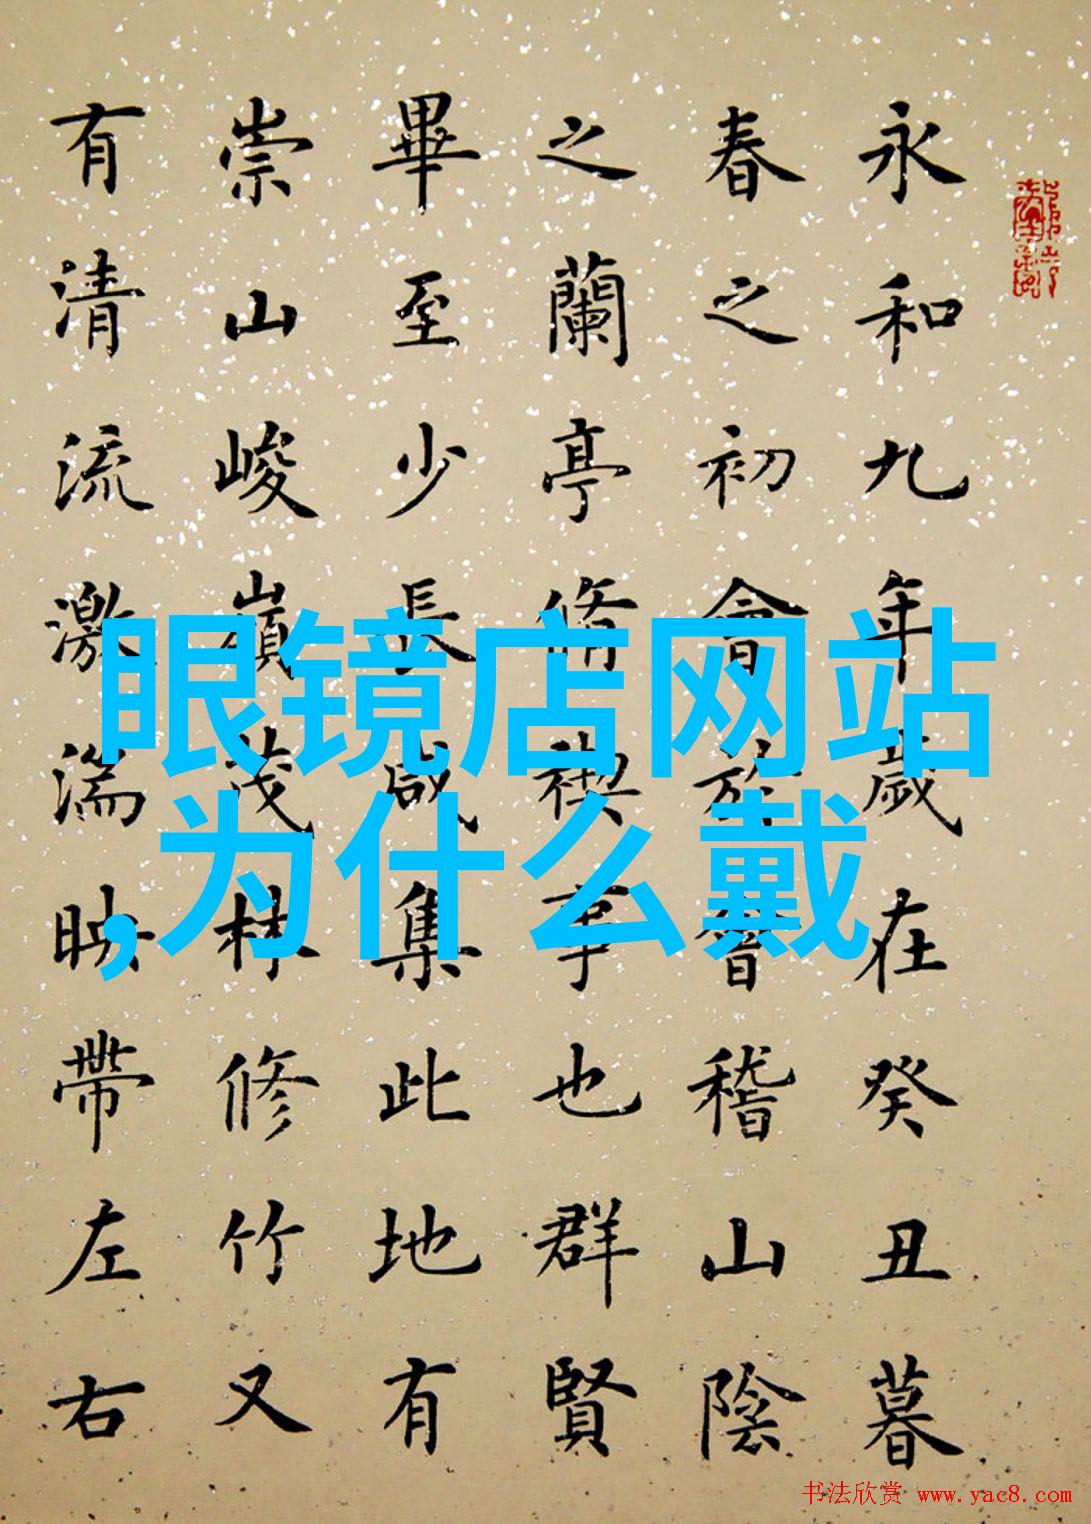 永和九年歲在癸丑暮
春之初會於會稽山陰
之蘭亭脩禊事也群賢
畢至少長咸集此地有
崇山峻嶺茂林修竹又
有清流激湍映帶左右
眼镜店网站
,为什么戴
书法欣赏 www.yac8.com